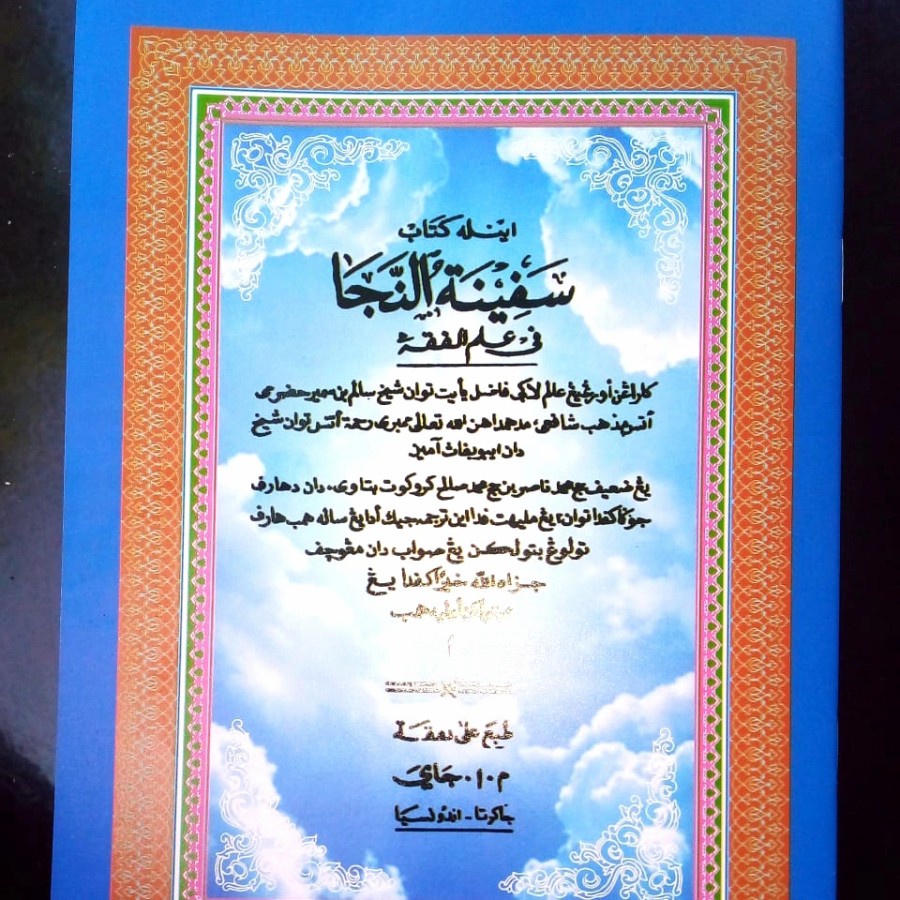 اينله كتاب
سَفِينَةُ النَّجَا
في علم الفقه
كاراغن أورغ يڠ عالم لاڬي فاضل يأيت توان شيخ سالم بن سمير حضرمي
أتس مذهب شافعي، مدهمداهن الله تعالى ممبري رحمة أتس توان شيخ
دان ايبو بفاث آمين
يڠ ضعيف حج محمد ناصر بن حج محمد صالح كروكوت بتاوي، دان دهارف
جوڬا كفدا توان٢ يڠ مليهت فدا اين ترجمه جيك أدا يڠ ساله همب هارف
تولوڠ بتولكن يڠ صواب دان مڠوچف
جزاه الله خيرًا كفدا يڠ
طبع على نفقة
م.ا. جاي
جاكرتا - اندونسيا